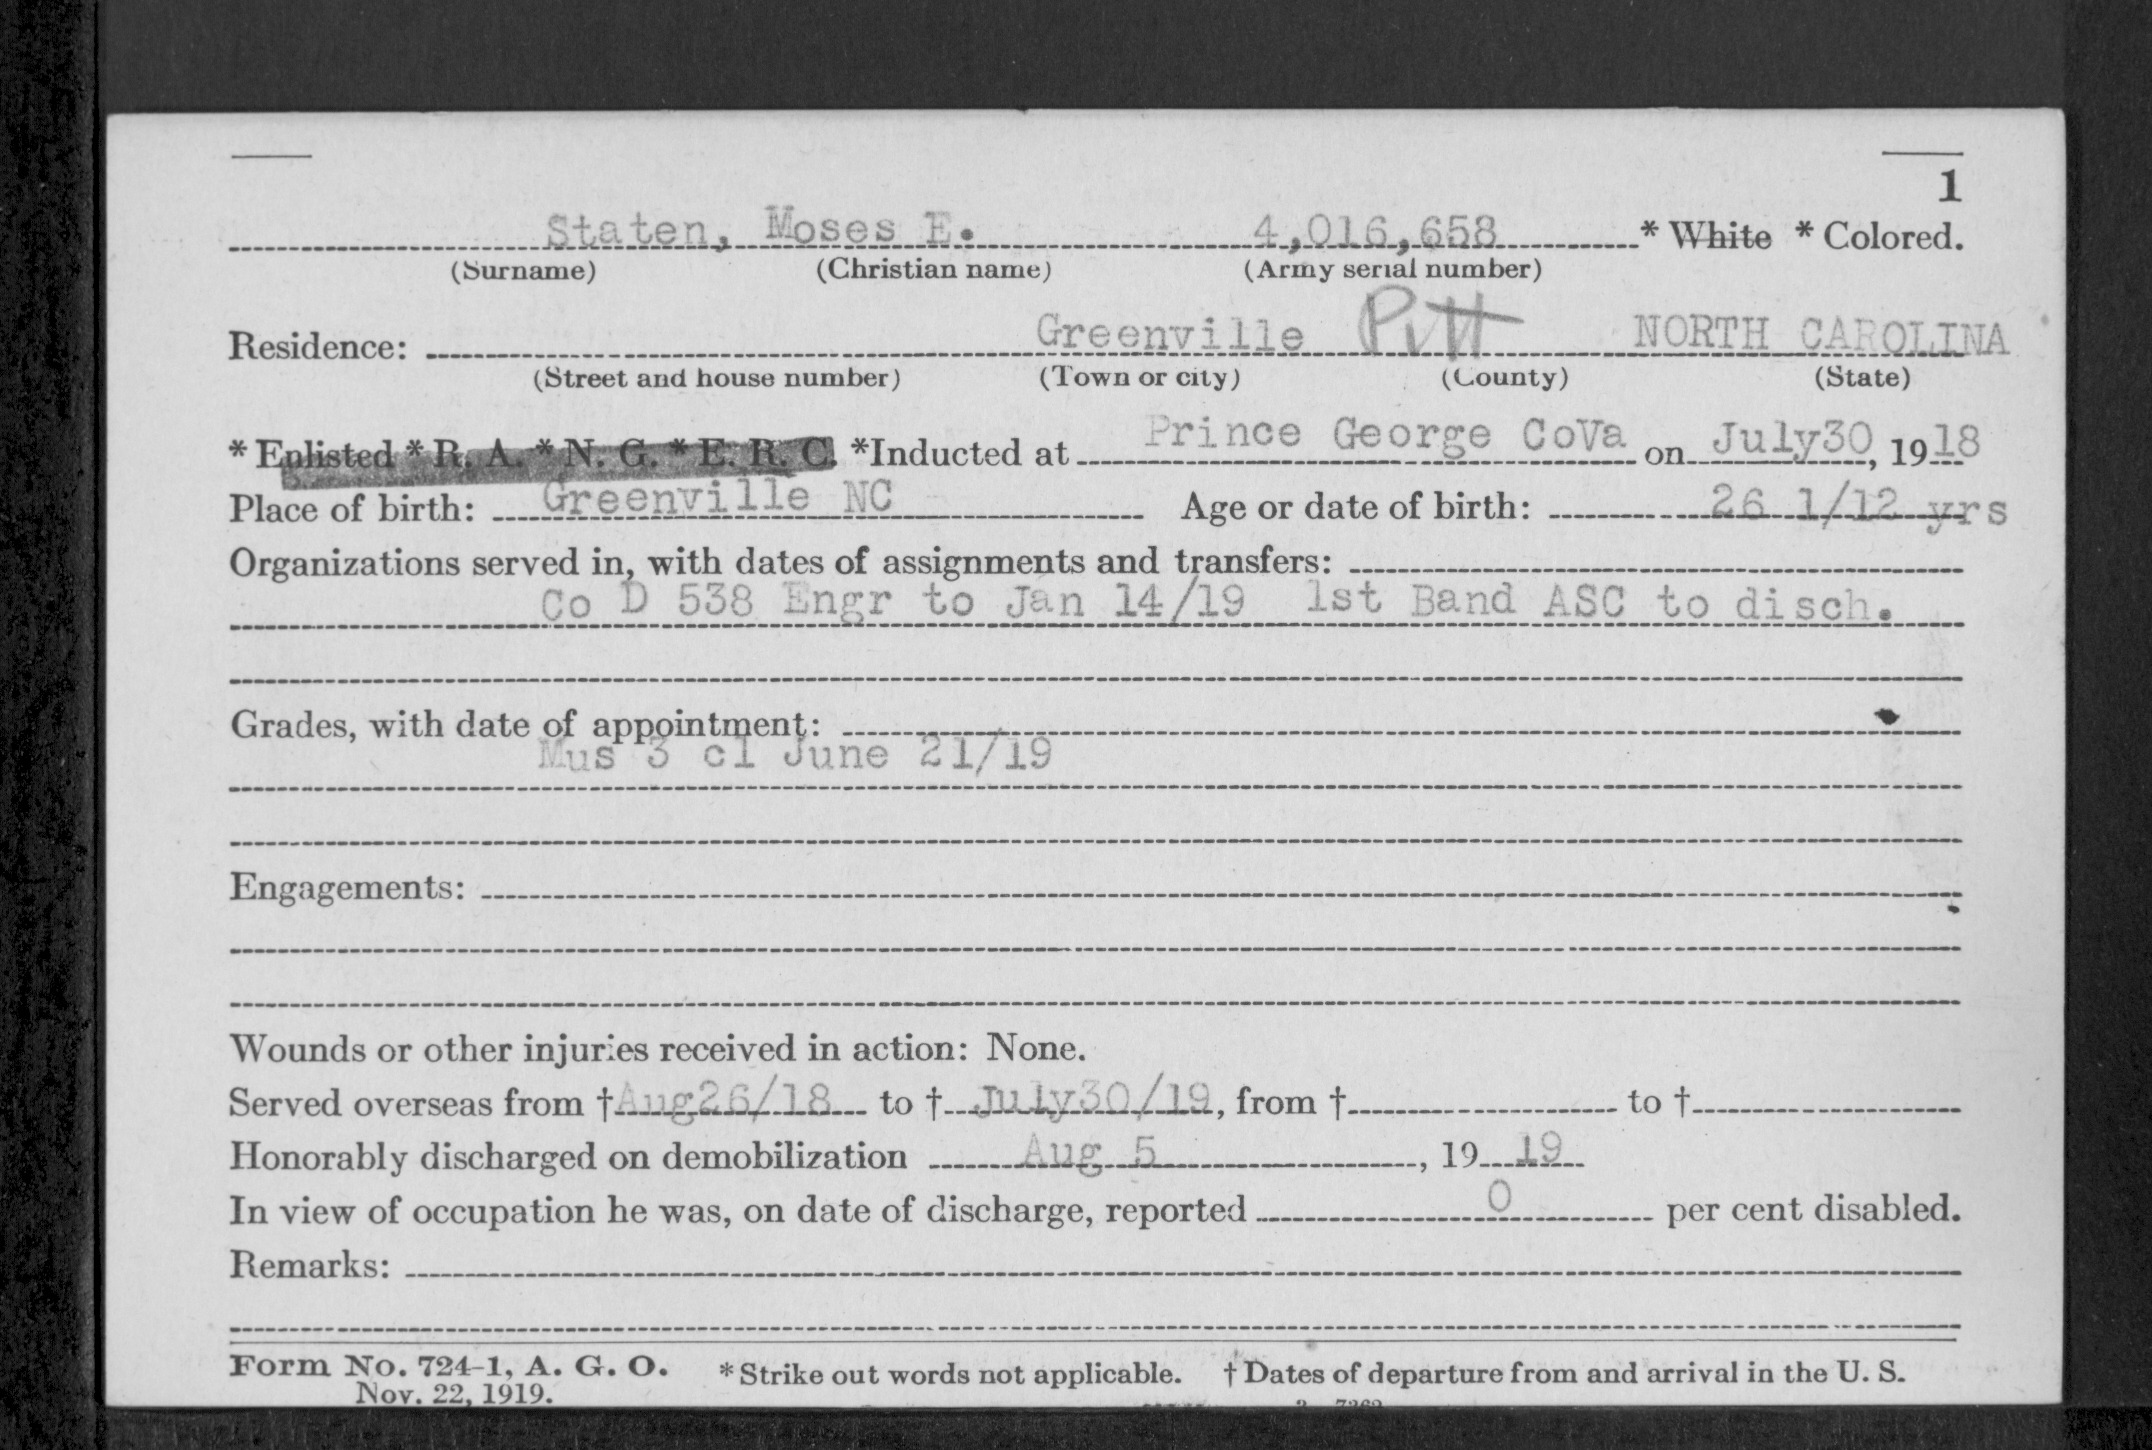 1
Staten, Moses E. 4,016,658 * White * Colored.
(Surname) (Christian name) (Army serial number)
Residence: Greenville Pitt NORTH CAROLINA
(Street and house number) (Town or city) (County) (State)
* Enlisted * R. A. * N. G. * E. R. C. *Inducted at Prince George CoVa on July30, 1918
Place of birth: Greenville NC Age or date of birth: 26 1/12 yrs
Organizations served in, with dates of assignments and transfers:
Co D 538 Engr to Jan 14/19 1st Band ASC to disch.
Grades, with date of appointment:
Mus 3 cl June 21/19
Engagements:
Wounds or other injuries received in action: None.
Served overseas from †Aug26/18 to † July30/19, from † to †
Honorably discharged on demobilization Aug 5, 19 19
In view of occupation he was, on date of discharge, reported 0 per cent disabled.
Remarks:
Form No. 724-1, A. G. O. * Strike out words not applicable. † Dates of departure from and arrival in the U. S.
Nov. 22, 1919.